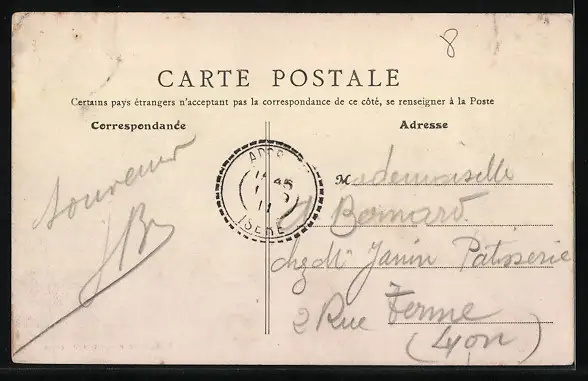 8
CARTE POSTALE
Certains pays étrangers n'acceptant pas la correspondance de ce côté, se renseigner à la Poste
Correspondance
Adresse
souvenir
ISERE
Mademoiselle
Bornard
chez Mr Janin Patisserie
2 Rue Terme
(Lyon)